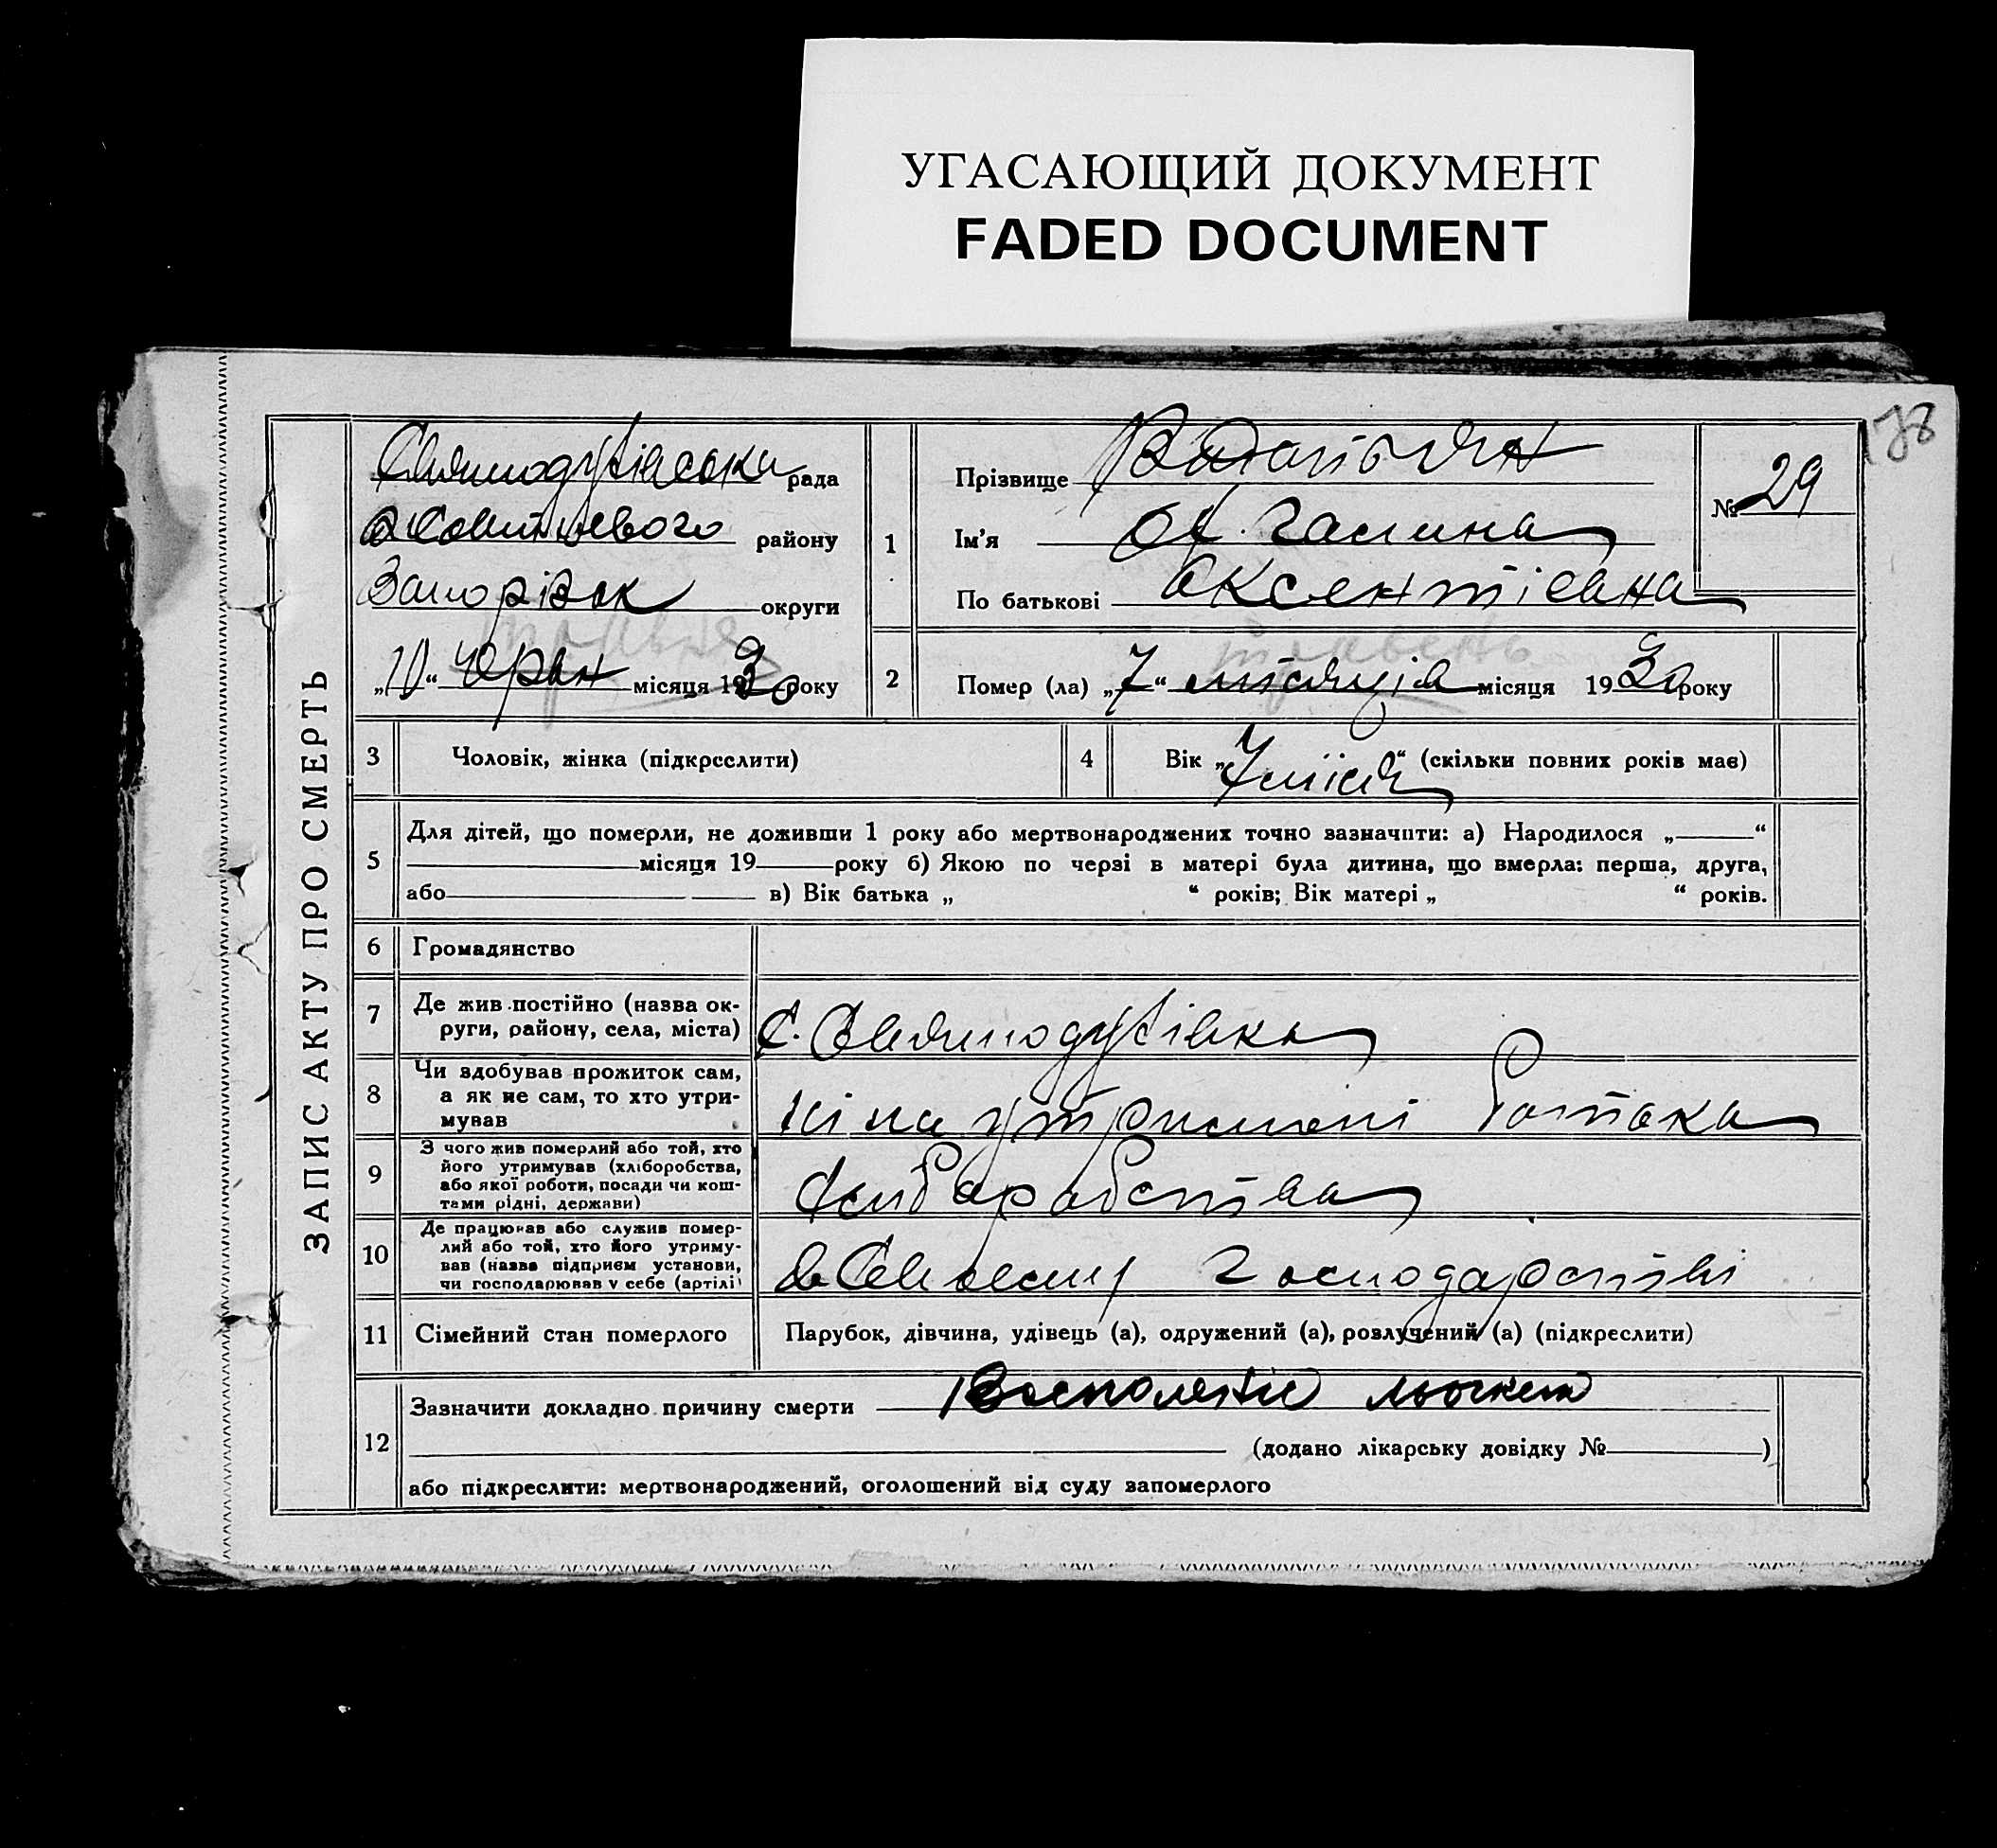 УГАСАЮЩИЙ ДОКУМЕНТ
FADED DOCUMENT
178
ЗАПИС АКТУ ПРО СМЕРТЬ
Святодухівська рада
району
Запоріжж округи
„10“ місяця 1930 року
травня
1
Прізвище
Ім'я Галина
По батькові Аксентіевна
№ 29
2
Помер (ла) „7“ місяця 1930 року
травень
3
Чоловік, жінка (підкреслити)
4
Вік „7 “ (скільки повних років має)
5
Для дітей, що померли, не доживши 1 року або мертвонароджених точно зазначити: а) Народилося „ “
місяця 19 року б) Якою по черзі в матері була дитина, що вмерла: перша, друга,
або в) Вік батька „ “ років; Вік матері „ “ років.
6
Громадянство
7
Де жив постійно (назва ок-
руги, району, села, міста)
С. Святодухівка
8
Чи здобував прожиток сам,
а як не сам, то хто утри-
мував
ні на утримані батька
9
З чого жив померлий або той, хто
його утримував (хліборобства,
або якої роботи, посади чи кош-
тами рідні, держави)
10
Де працював або служив помер-
лий або той, хто його утриму-
вав (назва підприєм установи,
чи господарював у себе (артілі)
в Своему господарстві
11
Сімейний стан померлого
Парубок, дівчина, удівець (а), одружений (а), розлучений (а) (підкреслити)
12
Зазначити докладно причину смерти
(додано лікарську довідку № )
або підкреслити: мертвонароджений, оголошений від суду запомерлого